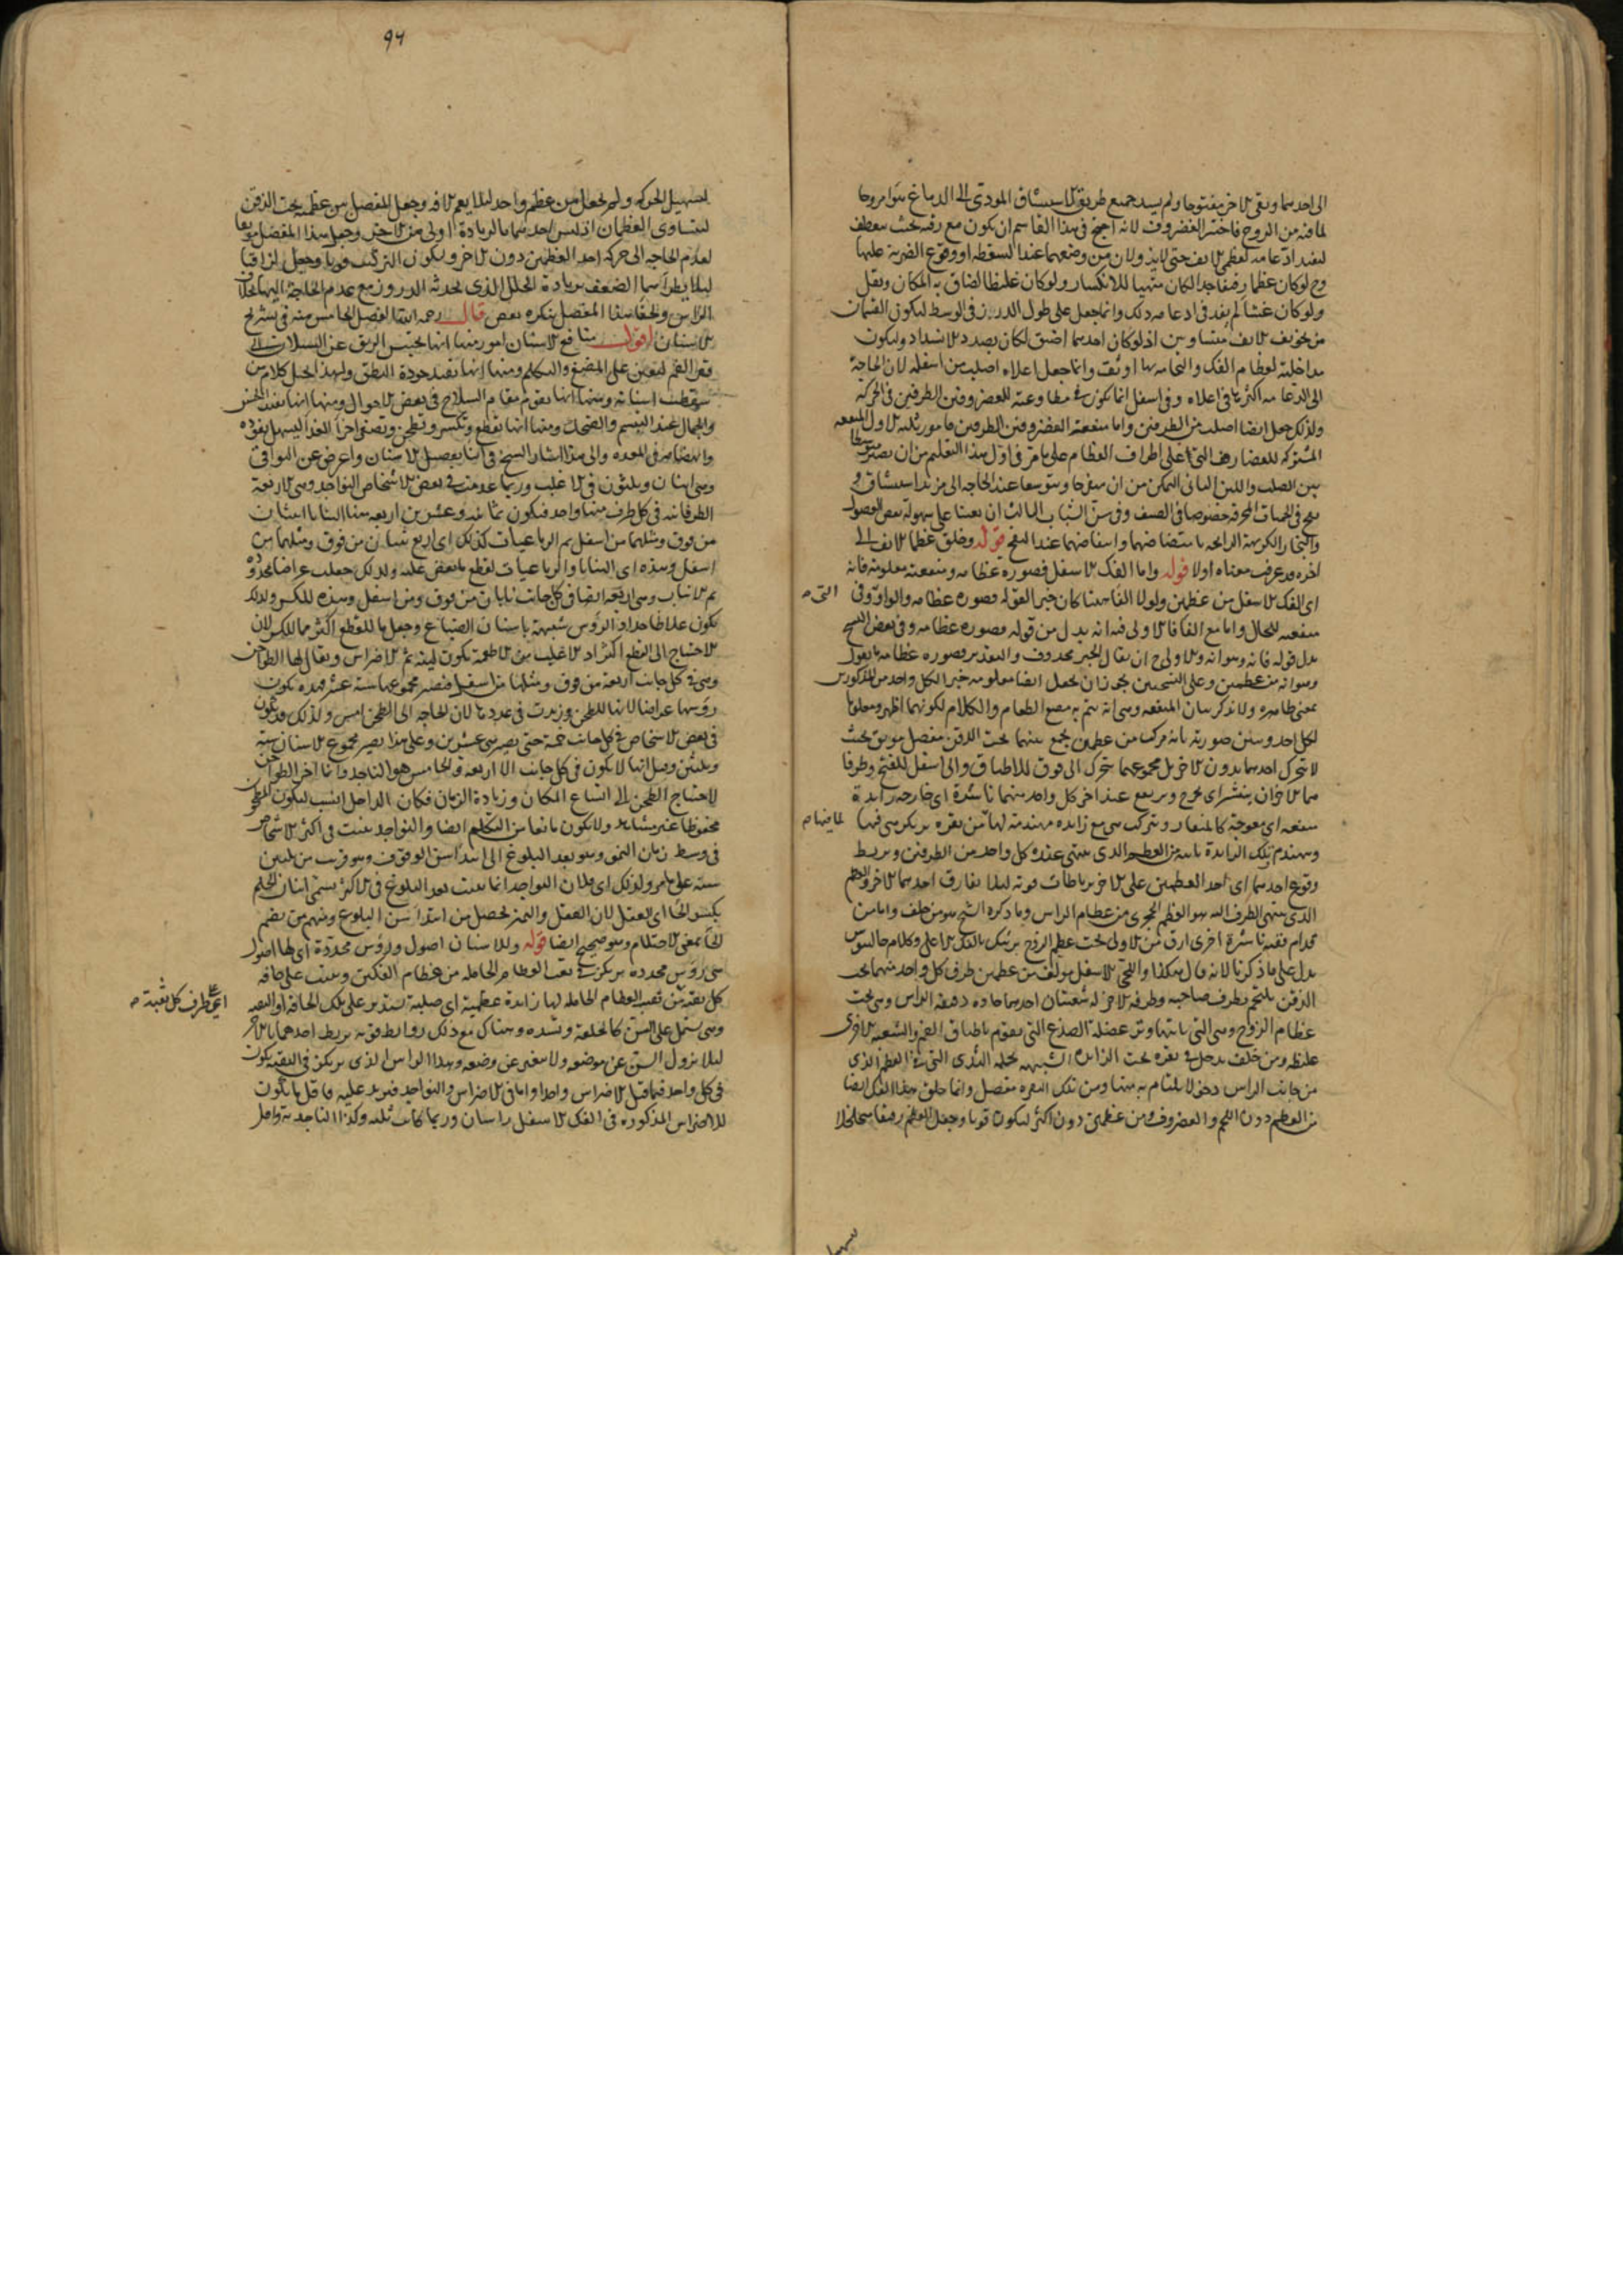 الى احدهما وبقى الاخر مفتوحا ولم يسد جميع طريق الاستنشاق المودى الى الدماغ هوا مروحا
لما فيه من الروح فاختير الغضروف لانه احج فى هذا القاسم ان يكون مع رقته بحيث ينعطف
ليفيد ادعامه لعظمى الانف حتى لاينــ ولان من وضعهما عند السقطه او وقوع الضربة عليها
وح لوكان عظما رقيقا جدا لكان متهيا للانكسار ولوكان غليظا لضاق به المكان وثقل
ولوكان غشا لم يفد فى ادعامه ذلك وانما جعل على طول الدرز فى الوسط ليكون القسمان
من تجويف الانف متساويين اذ لوكان احدهما اضيق لكان بصدد الانسداد وليكون
مداخلته لعظام الفك والتحامه بها اوثق وانما جعل اعلاه اصلب من اسفله لان الحاجة
الى الدعامه اكثرها فى اعلاه وفى اسفل انما يكون فى مطاوعته للغضروفين الطرفين فى الحركه
ولذلك جعل ايضا اصلب من الطرفين واما منفعة الغضروفين الطرفين فامور ثلثه الاول المنفعه
المشتركه للغضاريف التى على اطراف العظام على ما مر فى اول هذا التعليم من ان يصير متوسطا
بين الصلب واللين الثانى التمكن من ان ينفرجا ويتوسعا عند الحاجه الى مزيد استنشاق و
نفخ فى الحميات المحرقه خصوصا فى الصيف وفى سن الشباب الثالث ان يعينا على سهولة نفض الفضول
والبخار الكريهة الرايحه بانتفاضهما وانتفاضهما عند النفخ قوله وخلق عظما الانف الى
اخره قد عرفت معناه اولا قوله واما الفك الاسفل فصوره عظامه ومنفعته معلومه فانه
اى الفك الاسفل من عظمين ولولا الفا هنا كان خبر القوله وصوره عظامه والواو فى
التى
منفعه للحال واما مع الفا فالاولى فيه انه بدل من قوله وصوره عظامه وفى بعض النسخ
بدل قوله فانه وهو انه والاولى ح ان يقال الخبر محذوف والتقدير وصوره عظامه ما نقول
وهو انه من عظمين وعلى النسختين يجوز ان يجعل ايضا معلومه خبرا لكل واحد من المذكورين
بمعنى ظاهره ولا يذكر بيان المنفعه وهى انه يتم به مضغ الطعام والكلام لكونهما اظهر ومعلوما
لكل احد وبين صورته بانه مركب من عظمين يجمع بينهما تحت الذقن مفصل موثق بحيث
لا يتحرك احدهما بدون الاخر بل مجموعهما يتحرك الى فوق للاطباق والى اسفل للفتح وطرفا
هما الاخران ينشز اى يخرج ويرتفع عند اخر كل واحد منهما ناشزة اى خارجه زايدة
منعقفه اى معوجة كالمنقار ويتركب هى مع زايده مهندمة لها من نقره يرتكز هى فيها
لما فيها
ويهندم تلك الزايدة نابته من العظم الذى ينتهى عنده كل واحد من الطرفين ويربط
وقوع احدهما اى احد العظمين على الاخر برباطات قويه ليلا يفارق احدهما الاخر والعظم
الذى ينتهى الطرف اليه هو العظم الحجرى من عظام الراس وما ذكره الشيخ هو من خلف واما من
قدام ففيه ناشزة اخرى ارق من الاولى تحت عظم الزوج يرتبك بالفك الاعلى وكلام جالينوس
يدل على ما ذكرنا لانه قال هكذا واللحى الاسفل مولف من عظمين طرف كل واحد منهما تحت
الذقن يلتحم بطرف صاحبه وطرفه الاخر له شعبتان احدهما حاده دقيقة الراس وهى تحت
عظام الزوج وهى التى ياتيها وتر عضلة الصدغ التى يقوم باطباق الفم والشعبه الاخرى
غليظه ومن خلف يدخل فى نقره تحت الزايده الشبيهه بحلمه الثدى التى فى العظم الذى
من جانب الراس دخولا يلتئم به منها ومن تلك النقره مفصل وانما خلق هذا الفك ايضا
من العظم دون اللحم والغضروف ومن عظمين دون اكثر ليكون قويا وجعل العظم رقيقا متخلخلا
سهيل
94
لتسهيل الحركه ولم يجعل من عظم واحد ليلا يعم الافه وجعل المفصل بين عظميه تحت الذقن
ليتساوى العظمان اذ ليس احدهما بالزيادة اولى من الاخر وجعل هذا المفصل موثقا
لعدم الحاجه الى حركه احد العظمين دون الاخر وليكون التركيب قويا وجعل لزاقيا
ليلا يطرا سيما الضعف بزيادة الخلل الذى يحدثه الدروز مع عدم الحاجة اليها بخلاف
الراس ولخفا هذا المفصل ينكره بعض قال رحمه الله الفصل الخامس منه فى تشريح
الاسنان اقول منافع الاسنان امور منها انها تحبس الريق عن السيلان الى
قعر الفم ليعين على المضغ والتكلم ومنها انها تفيد جودة النطق ولهذا اختل كلام من
سقطت اسنانه ومنها انها يقوم مقام السلاح فى بعض الاحوال ومنها انها يفيد الحسن
والجمال عند التبسم والضحك ومنها انها تقطع وتكسر وتطحن وتصغر اجزا الغذا ليسهل نفوذه
وانهضامه فى المعده والى هذا اشار الشيخ فى اثنا تفصيل الاسنان واعرض عن البواقى
وهى اثنان وثلثون فى الاغلب وربما عدمت فى بعض الاشخاص النواجذ وهى الاربعة
الطرفانيه فى كل طرف منها واحد فيكون ثمانيه وعشرين اربعه منها الثنايا اثنان
من فوق ومثلهما من اسفل ثم الرباعيات كذلك اى اربع ثنتان من فوق ومثلهما من
اسفل وهذه اى الثنايا والرباعيات لقطع ما يعض عليه ولذلك جعلت عراضا محدده
ثم الانياب وهى اربعه ايضا فى كل جانب نابان من فوق ومن اسفل وهذه للكسر ولذلك
يكون غلاظا حداد الرؤس شبيهة باسنان الضباع وجعل ما للقطع اكثر مما للكسر لان
الاحتياج الى القطع اكثر اذ الاغلب من الاطعمة يكون لينه ثم الاضراس ويقال لها الطواحن
وهى فى كل جانب اربعة من فوق ومثلها من اسفل فيصير مجموعها سته عشر وهذه يكون
رؤسها عراضا لانها للطحن وزيدت فى عددها لان الحاجه الى الطحن امس ولذلك قد يكون
فى بعض الاشخاص فى كل جانب خمسة حتى يصير هى عشرين وعلى هذا يصير مجموع الاسنان ستة
وثلثين وقيل انها لا يكون فى كل جانب الا اربعه والخامس هو الناجذ وانما اخر الطواحن
لاحتياج الطحن الى اتساع المكان وزيادة الزمان فكان الداخل انسب ليكون المطحون
محفوظا غير مشاهد ولا يكون مانعا من التكلم ايضا والنواجذ ينبت فى اكثر الاشخاص
فى وسط زمان النمو وهو بعد البلوغ الى ابتدا سن الوقوف وهو قريب من ثلثين
سنه على ما مر ولذلك اى فلان النواجذ انما ينبت بعد البلوغ فى الاكثر يسمى اسنان الحلم
بكسر الحا اى العقل لان العقل والتميز يحصل من ابتدا سن البلوغ ومنهم من يضم
الحا بمعنى الاحتلام وهو صحيح ايضا قوله وللاسنان اصول ورؤس محددة اى لها اصول
هى رؤس محدده يرتكز فى ثقب العظام الحامله من عظام الفكين وينبت على حافه
كل ثقبه من ثقب العظام الحامله لها زايدة عظمية اى صلبة يستدير على تلك الحافه او الثقبه
اى على طرف كل ثقبة
وهى يشتمل على السن كالحلقه ويشده وهناك مع ذلك روابط قويه يربط احدهما بالاخر
ليلا يزول السن عن موضعه ولا يتغير عن وضعه وهذا الراس الذى يرتكز فى الثقبه يكون
فى كل واحد فيما قبل الاضراس واحدا واما فى الاضراس والنواجذ فيزيد عليه فاقل ما يكون
للاضراس المذكوره فى الفك الاسفل راسان وربما كانت ثلثه وكذا الناجذ